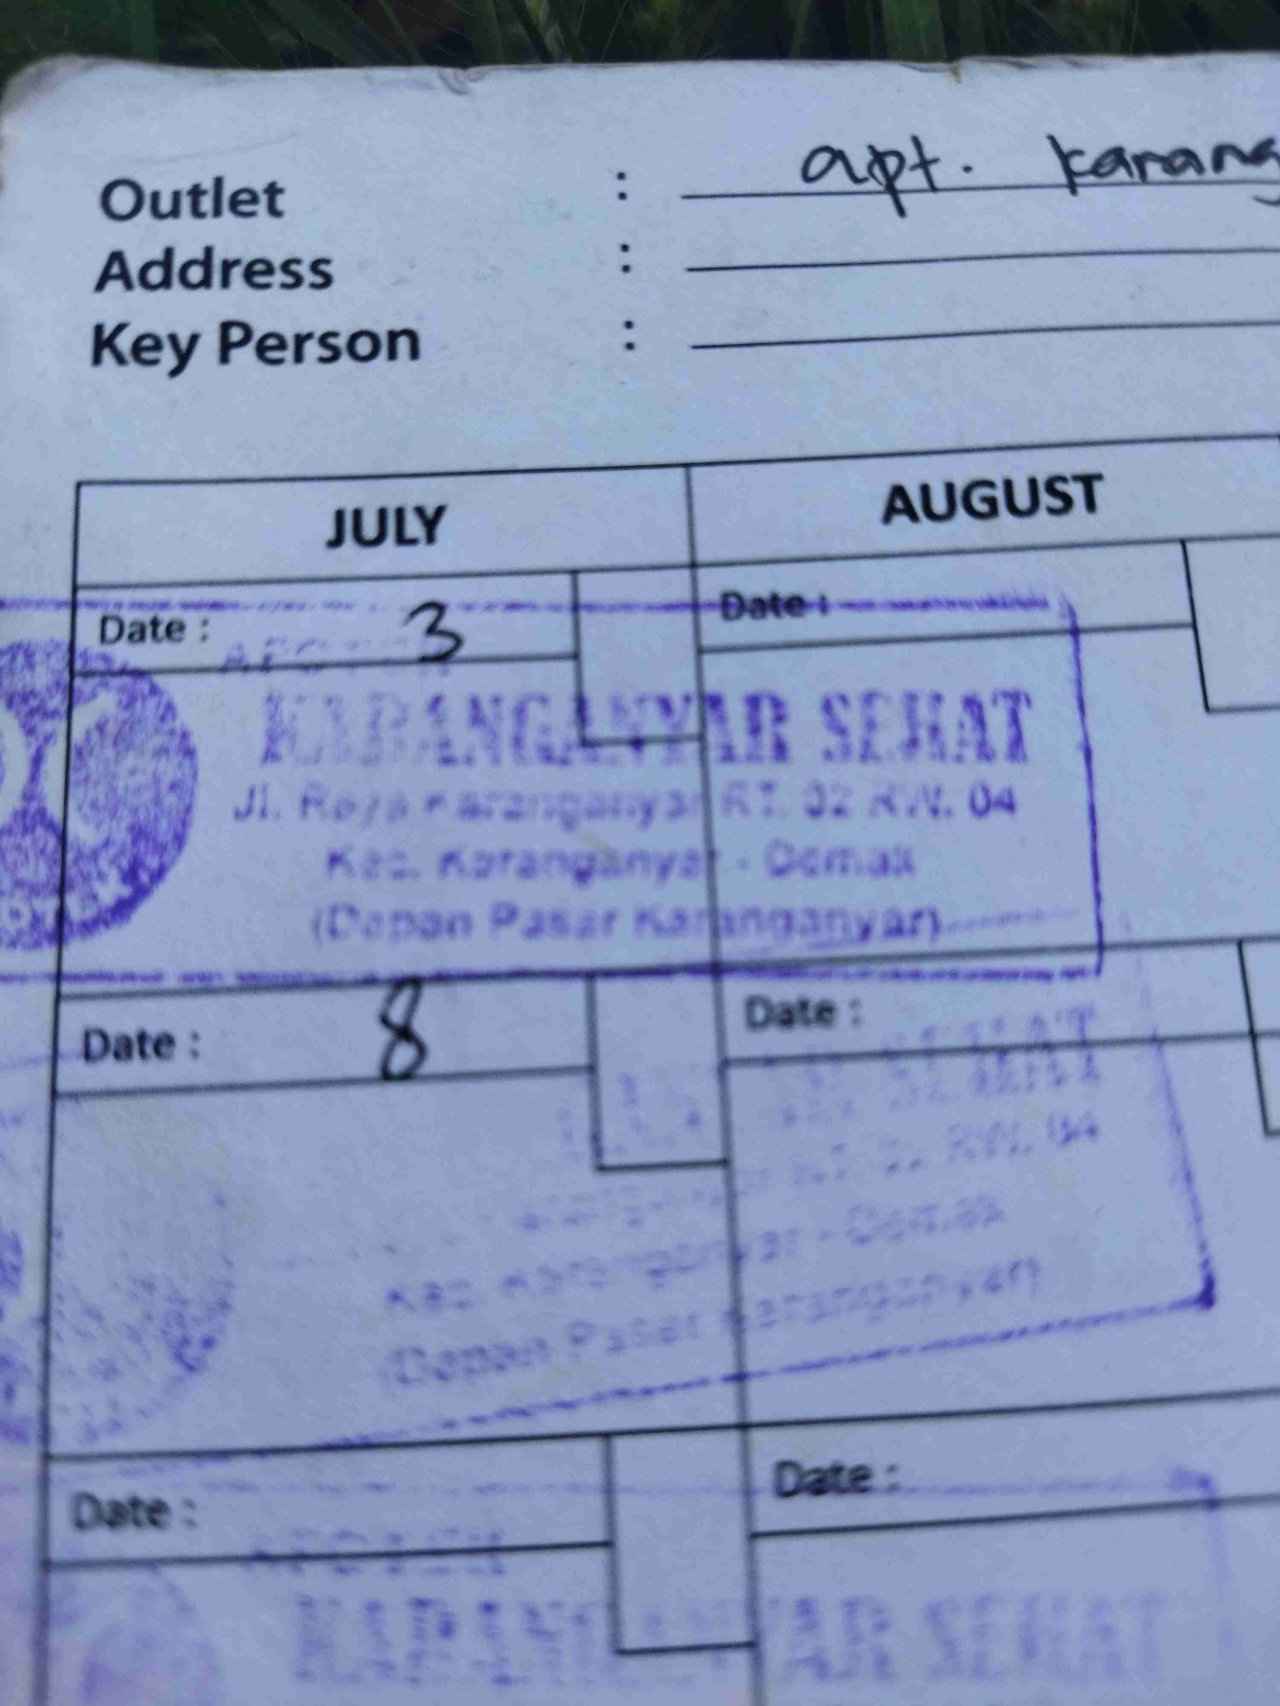 Outlet : apt. karang
Address :
Key Person :
JULY AUGUST
Date : 3 Date :
APOTEK
KARANGANYAR SEHAT
Jl. Raya Karanganyar RT. 02 RW. 04
Kec. Karanganyar - Demak
(Depan Pasar Karanganyar)
Date : 8 Date :
SEHAT
RW. 04
Kec. Karanganyar - Demak
(Depan Pasar Karanganyar)
Date : Date :
APOTEK
KARANGANYAR SEHAT